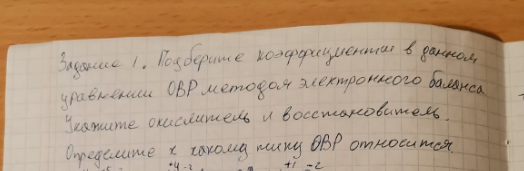 Задание 1. Подберите коэффициенты в данном
уравнении ОВР методом электронного баланса
Укажите окислитель и восстановитель.
Определите к какому типу ОВР относится